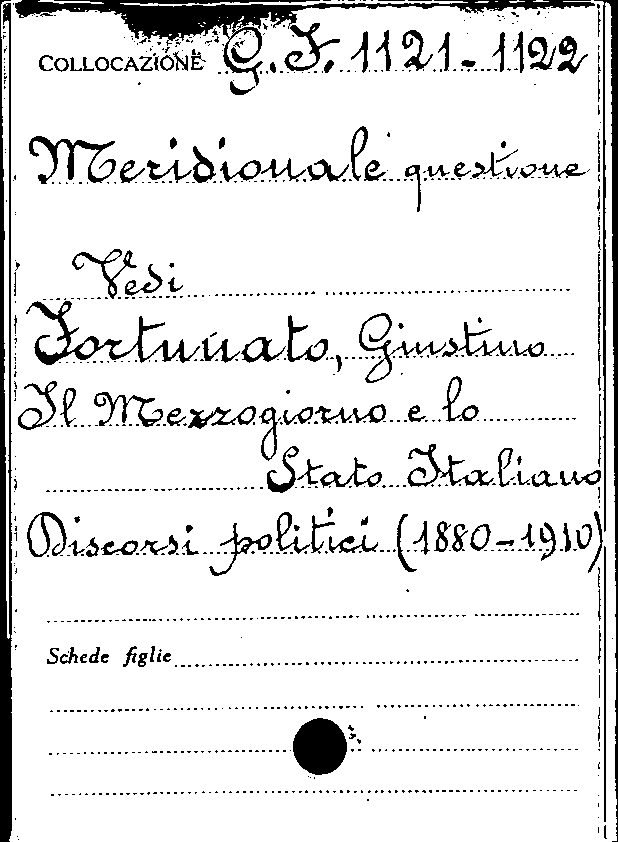 COLLOCAZIONE G. F. 1121-1122
Meridionale questione
Vedi
Fortunato, Giustino
Il Mezzogiorno e lo
Stato Italiano
Discorsi politici (1880-1910)
Schede figlie